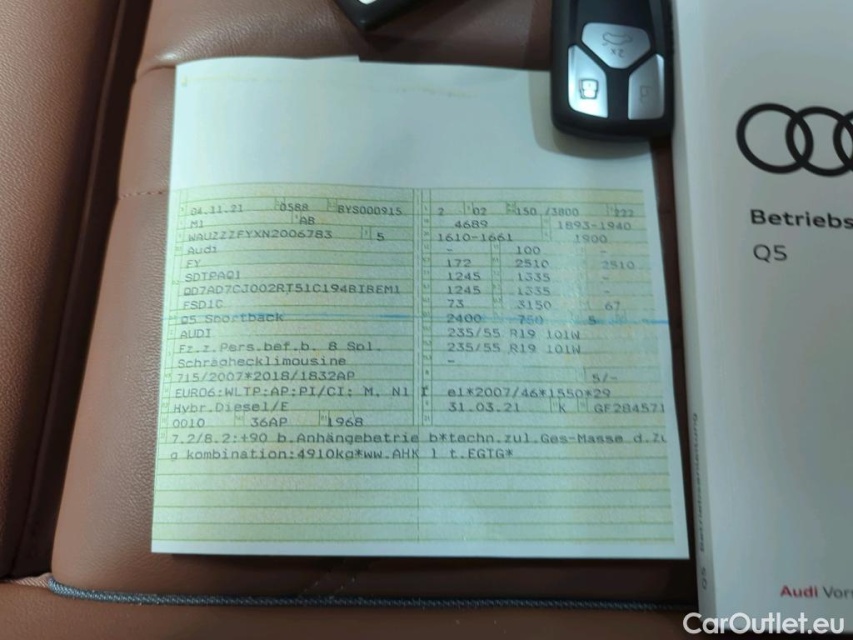 2X
04.11.21 0588 BYS000915 2 02 150 /3800 222
M1 AB 4689 1893-1940
WAUZZZFYXN2006783 5 1610-1661 1900
Audi - 100 -
FY 172 2510 2510
SDTPAQ1 1245 1335 -
QD7AD7CJ002RT51C194BIBEM1 1245 1335 -
FSD1C 73 3150 67
Q5 Sportback 2400 750 5
AUDI 235/55 R19 101W
Fz.z.Pers.bef.b. 8 Spl. 235/55 R19 101W
Schräghecklimousine -
715/2007*2018/1832AP 5/-
EURO6:WLTP:AP:PI/CI: M, N1 I e1*2007/46*1550*29
Hybr.Diesel/E 31.03.21 K GF284571
0010 36AP 1968
7.2/8.2:+90 b.Anhängebetrie b*techn.zul.Ges-Masse d.Zu
g kombination:4910kg*ww.AHK l t.EGTG*
Betriebs
Q5
Audi Vor
CarOutlet.eu